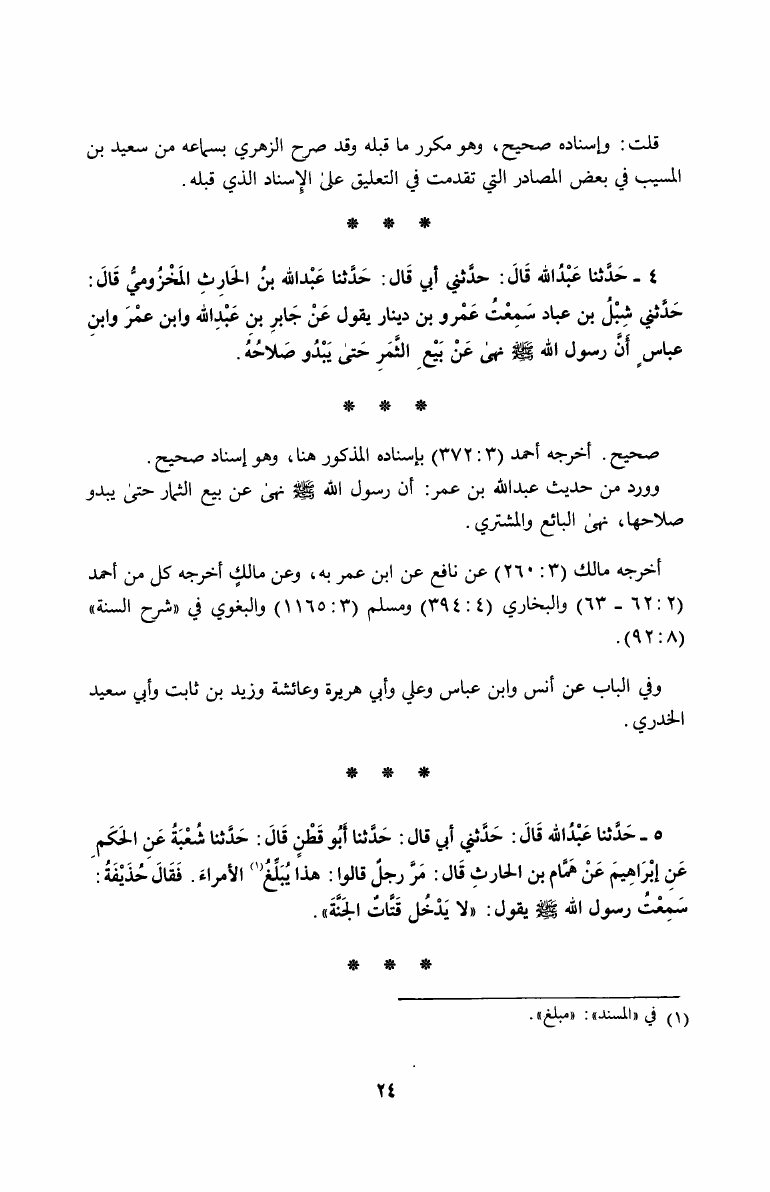 قلت: وإسناده صحيح، وهو مكرر ما قبله وقد صرح الزهري بسماعه من سعيد بن
المسيب في بعض المصادر التي تقدمت في التعليق علىٰ الإِسناد الذي قبله.
* * *
٤ ـ حَدَّثنا عَبْدُالله قَالَ: حدَّثني أبي قَال: حَدَّثنا عَبْدالله بنُ الحَارِثِ المَخْزُوميُّ قَالَ:
حَدَّثني شِبْلُ بن عباد سَمِعْتُ عَمْرو بن دينار يقول عَنْ جَابرِ بنِ عَبْدِالله وابن عمْرَ وابنِ
عباسٍ أَنَّ رسول الله ﷺ نهىٰ عَنْ بَيْعِ الثَّمَرِ حَتىٰ يَبْدُو صَلاحُهُ.
* * *
صحيح. أخرجه أحمد (٣: ٣٧٢) بإسناده المذكور هنا، وهو إسناد صحيح.
وورد من حديث عبدالله بن عمر: أن رسول الله ﷺ نهىٰ عن بيع الثمار حتىٰ يبدو
صلاحها، نهىٰ البائع والمشتري.
أخرجه مالك (٣: ٢٦٠) عن نافع عن ابن عمر به، وعن مالكٍ أخرجه كل من أحمد
(٢: ٦٢ ـ ٦٣) والبخاري (٤: ٣٩٤) ومسلم (٣: ١١٦٥) والبغوي في «شرح السنة»
(٨: ٩٢).
وفي الباب عن أنس وابن عباس وعلي وأبي هريرة وعائشة وزيد بن ثابت وأبي سعيد
الخدري.
* * *
٥ ـ حَدَّثنا عَبْدُالله قَالَ: حَدَّثني أبي قال: حَدَّثنا أَبُو قَطْنٍ قَالَ: حَدَّثنا شُعْبَةُ عَنِ الحَكَمِ
عَنِ إبْرَاهِيمَ عَنْ هَمَّام بن الحارثِ قَال: مَرَّ رجلٌ قالوا: هذا يُبَلِّغُ(١) الأمراءَ. فَقَالَ حُذَيْفَةُ:
سَمِعْتُ رسول الله ﷺ يقول: «لا يَدْخُل قَتَّاتٌ الجَنَّةَ».
* * *
(١) في «المسند»: «مبلغ».
٢٤